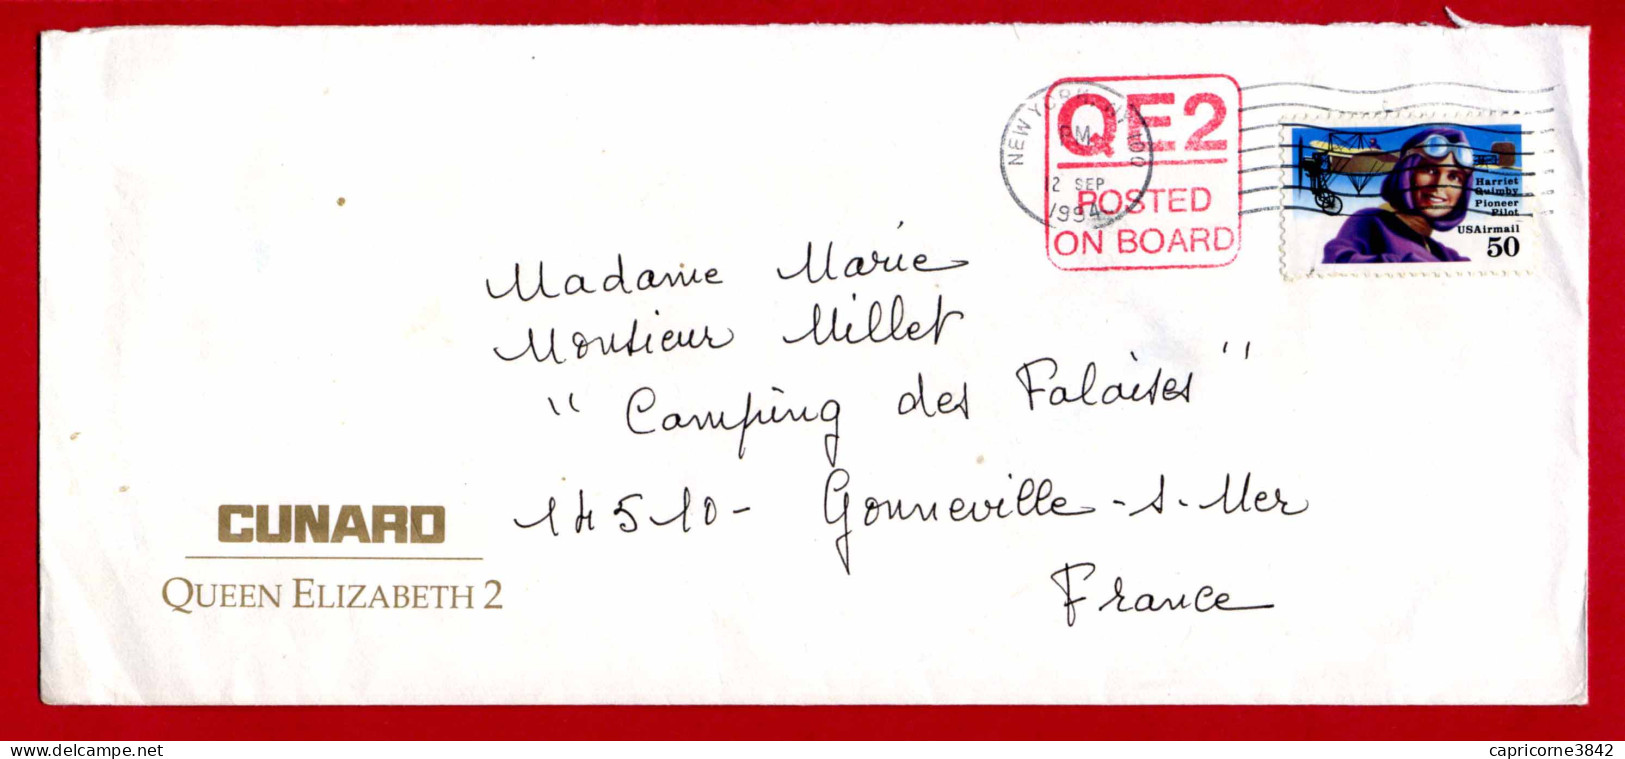 NEW YORK, NY 100
PM
12 SEP
1994
QE2
POSTED
ON BOARD
Harriet
Quimby
Pioneer
Pilot
USAirmail
50
Madame Marie
Monsieur Millet
"Camping des Falaises"
14510- Gonneville-s-Mer
France
CUNARD
QUEEN ELIZABETH 2
delcampe.net
capricorne3842